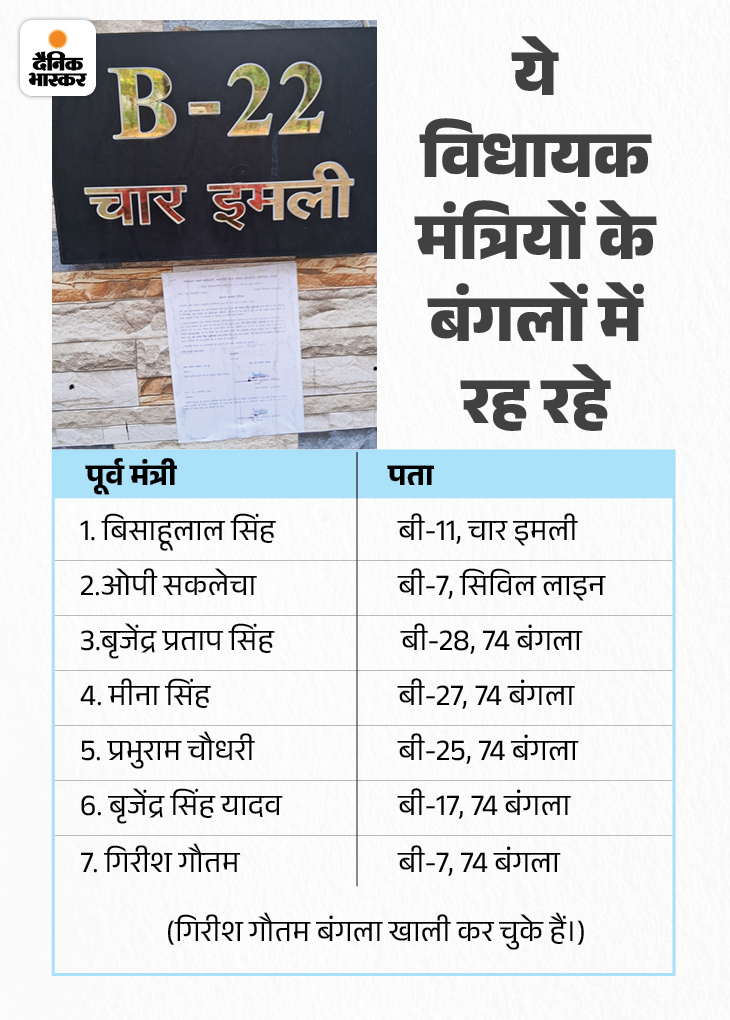 दैनिक
भास्कर
B-22
चार इमली
ये
विधायक
मंत्रियों के
बंगलों में
रह रहे
पूर्व मंत्री पता
1. बिसाहूलाल सिंह बी-11, चार इमली
2.ओपी सकलेचा बी-7, सिविल लाइन
3.बृजेंद्र प्रताप सिंह बी-28, 74 बंगला
4. मीना सिंह बी-27, 74 बंगला
5. प्रभुराम चौधरी बी-25, 74 बंगला
6. बृजेंद्र सिंह यादव बी-17, 74 बंगला
7. गिरीश गौतम बी-7, 74 बंगला
(गिरीश गौतम बंगला खाली कर चुके हैं।)